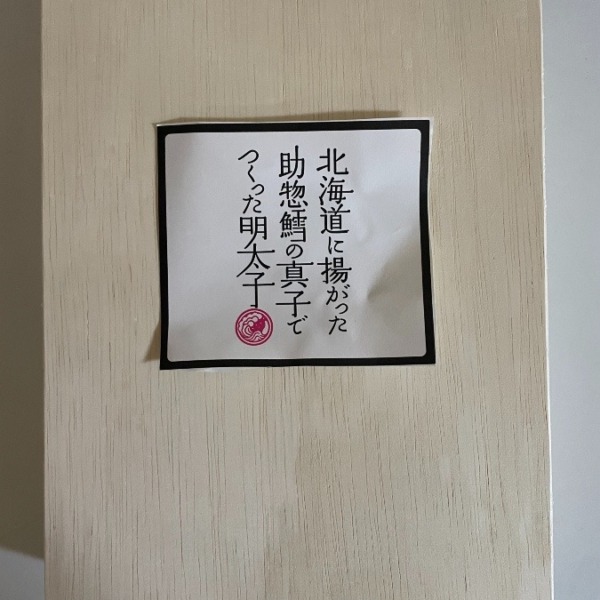 北海道に揚がった
助惣鱈の真子で
つくった明太子